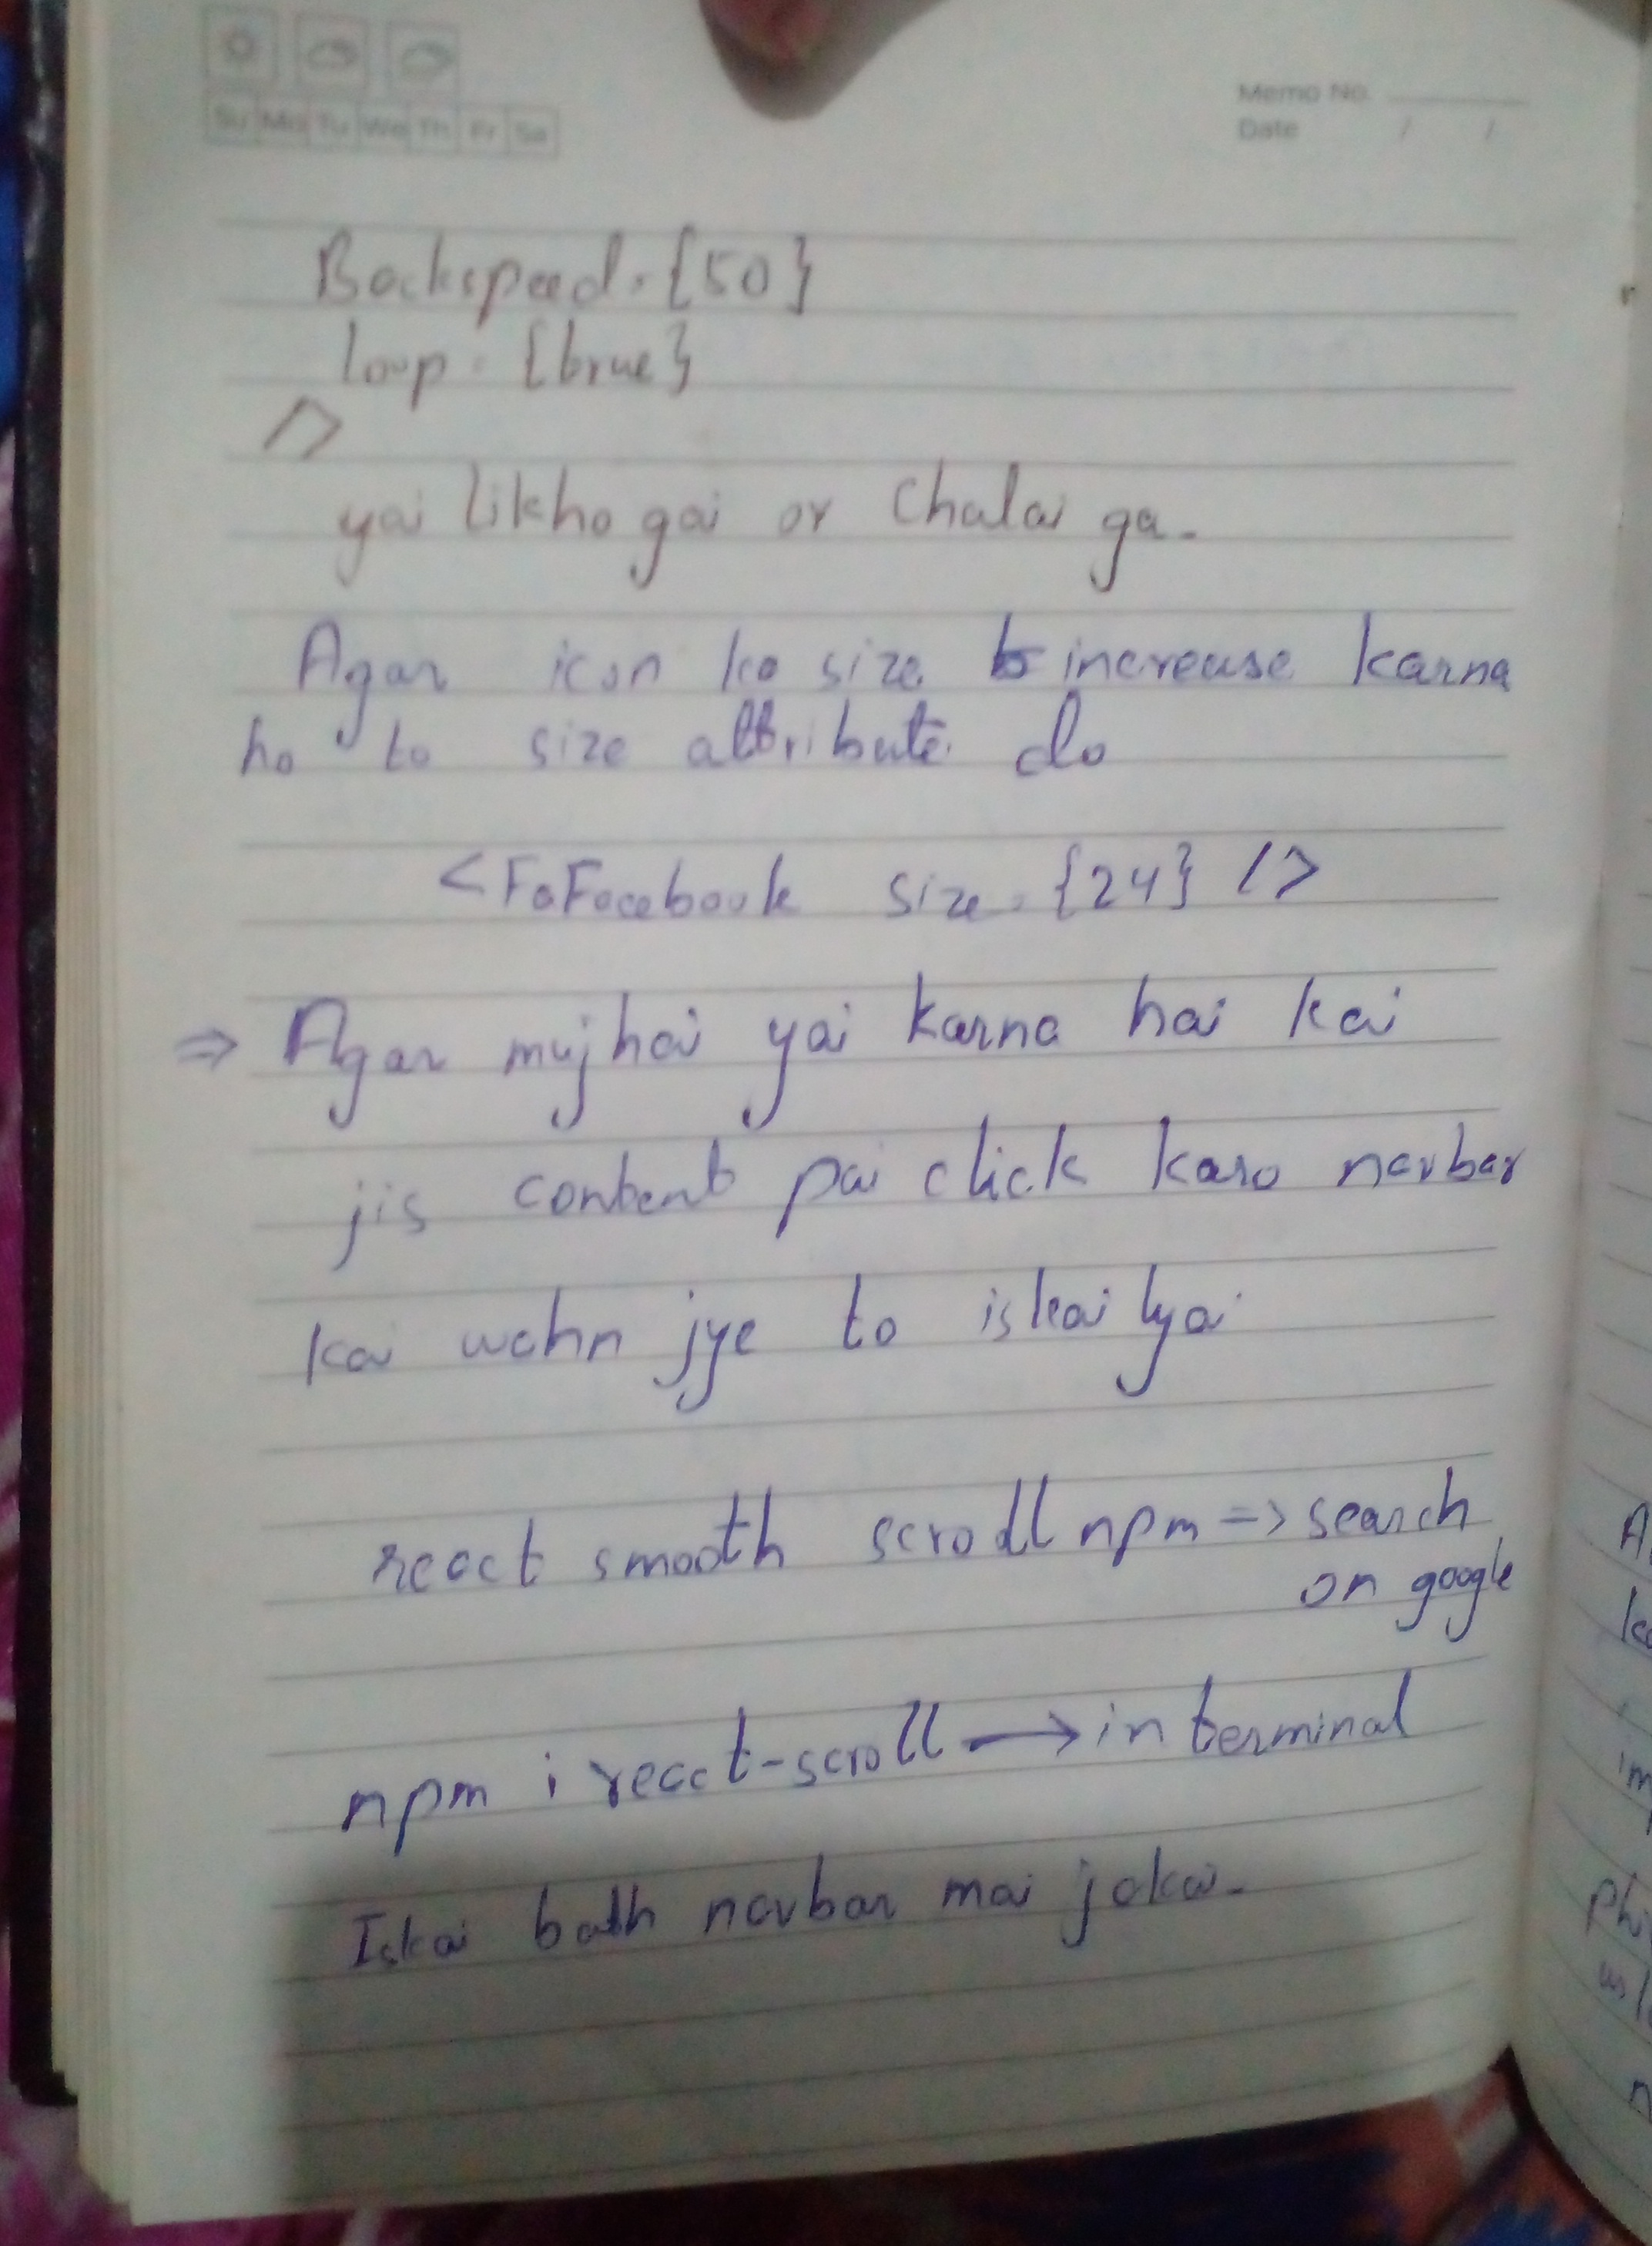 Su Mo Tu We Th Fr Sa
Memo No.
Date / /
Backspeed={50}
loop={true}
/>
yai likho gai or Chalai ga.
Agar icon ko size increase karna
ho to size attribute do
<FaFacebook size={24} />
⇒ Agar mujhai yai karna hai kai
jis content pai click karo navbar
kai wahn jye to iskai lyai
react smooth scroll npm => search
on google
npm i react-scroll → in terminal
Iskai bath navbar mai jakai.